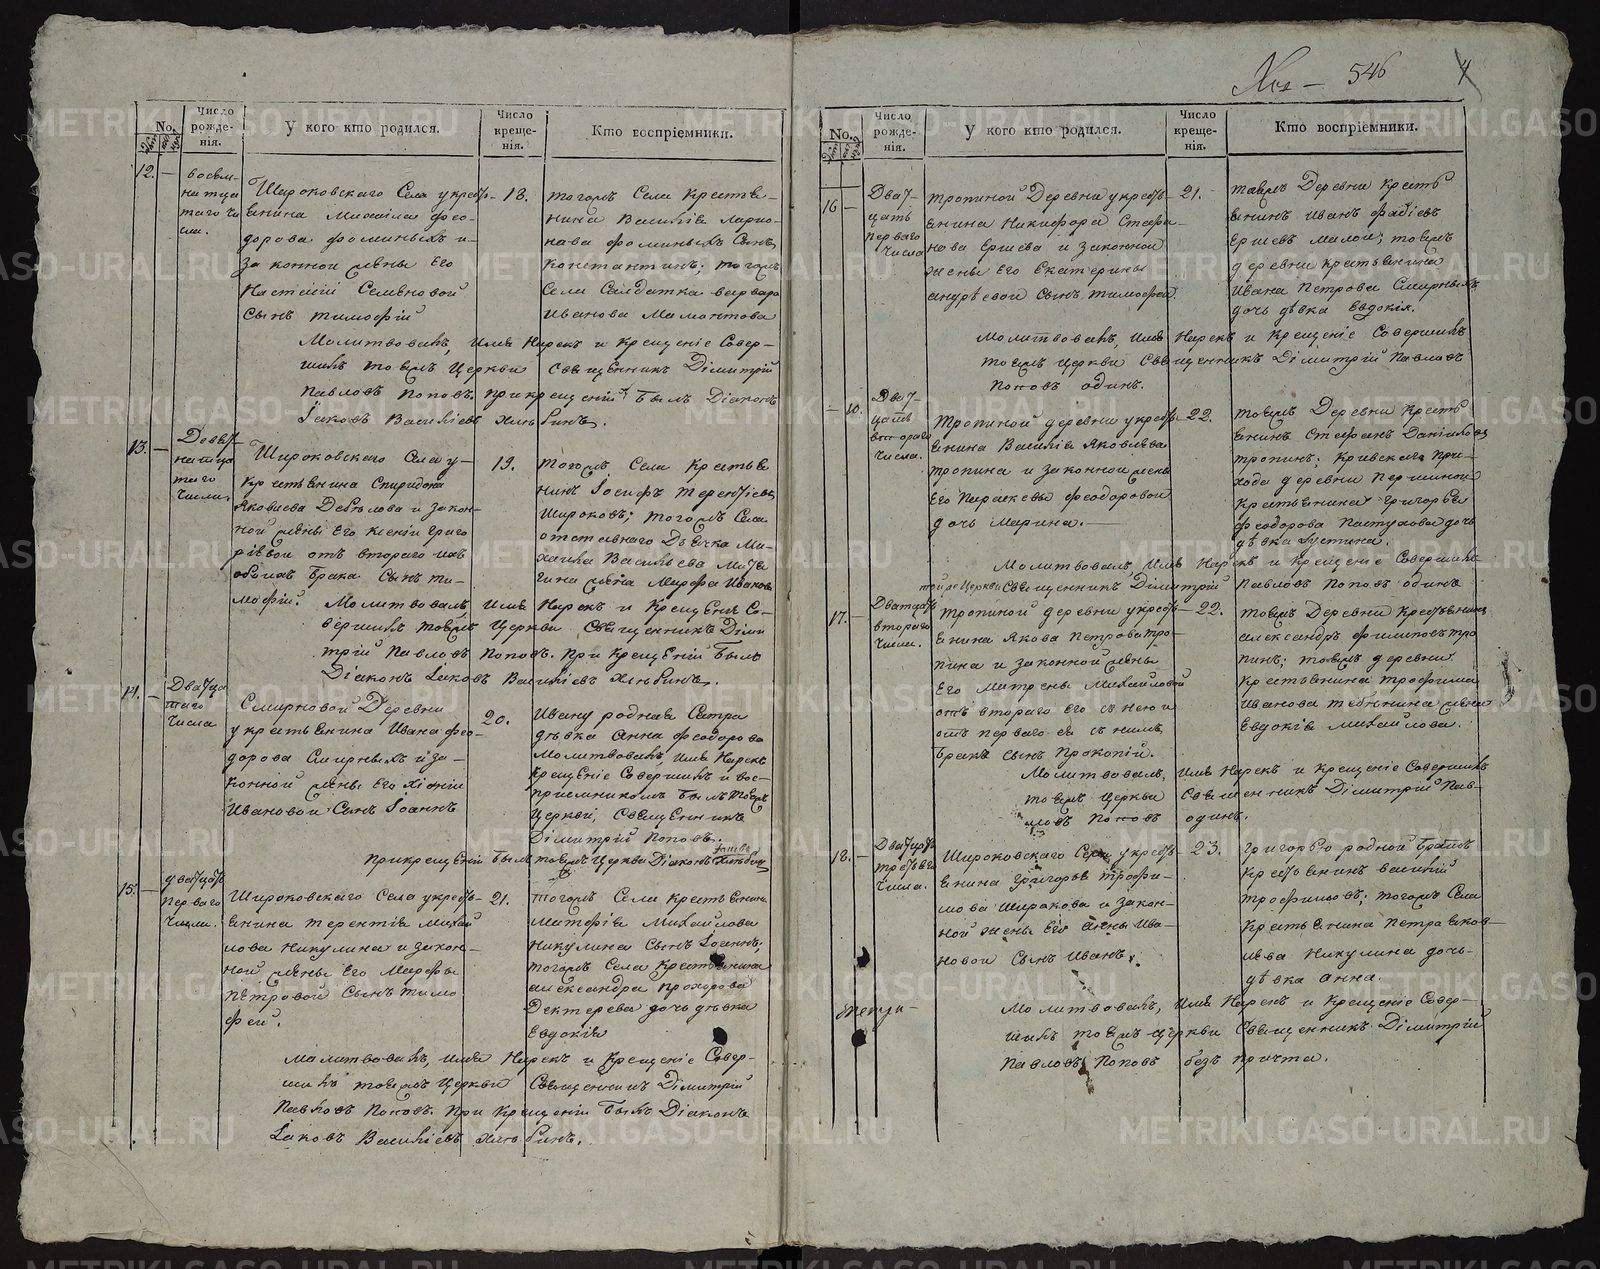 No.
Число рожде- нія.
У кого кто родился.
Число креще- нія.
Кто воспріемники.
12. —
восем-
натца
таго чи
сла.
Широковскаго Села укресть-
янина Михаила Фео-
дорова Фоминыхъ и
законной жены Его
Настасіи Семеновой
Сынъ Тимофій
18.
тогожъ Села Крестья-
нина Василія Ларио-
нова Фоминыхъ Сынъ
Константинъ; тогожъ
Села Салдатка варвара
Иванова Мамонтова
Молитвовалъ, Имя Нарекъ и Крещеніе Совер-
шилъ тоежъ Церкви Священникъ Димитрій
Павловъ Поповъ. При крещеніи былъ Діаконъ
Іаковъ Василіевъ Хлѣбинъ.
13. —
Девят-
натца
таго
числа.
Широковскаго Села у-
крестьянина Спиридона
Яковлева Девѣлова и закон-
ной жены Его Ксеніи Григо
ріевой отъ втораго ихъ
обоихъ брака Сынъ Ти-
мофій.
19.
тогожъ Села Крестья
нинъ Іосифъ Терентіевъ
Широковъ; тогожъ Села
отставнаго Дьячка Ми-
хаила Васильева
жена Марфа Иванова
Молитвовалъ Имя Нарекъ и Крещеніе Со-
вершилъ тоежъ Церкви Священникъ Дими
трій Павловъ Поповъ. При Крещеніи былъ
Діаконъ Іаковъ Василіевъ Хлѣбинъ.
14. —
Дватца
таго
числа
Смирновой Деревни
укрестьянина Ивана Фео-
дорова Смирныхъ и за-
конной жены Его Хіоніи
Ивановой Сынъ Іоаннъ
20.
Ивану родная Сетра
дѣвка Анна Феодорова
Молитвовалъ, Имя Нарекъ
Крещеніе Совершилъ и вос-
приемникомъ былъ тоежъ
Церкви, Священникъ
Димитрій Поповъ.
При крещеніи былъ тоежъ Церкви Діаконъ Іаковъ Хлѣбинъ
15. —
Дватцать
перваго
числа.
Широковскаго Села укресть-
янина Терентія Михай
лова Никулина и закон-
ной жены Его Марфы
Петровой Сынъ Тимо
фей.
21.
тогожъ Села Крестьянина
Матфія Михайлова
Никулина Сынъ Іоаннъ;
тогожъ Села Крестьянина
Александра Прохорова
Дектерева дочь дѣвка
Евдокія
Молитвовалъ, Имя Нарекъ и Крещеніе Совер-
шилъ тоежъ Церкви Священникъ Димитрій
Павловъ Поповъ. При Крещеніи былъ Діаконъ
Іаковъ Василіевъ Хлѣбинъ.
546
4
No.
Число рожде- нія.
У кого кто родился.
Число креще- нія.
Кто воспріемники.
16 —
Дват-
цать
перваго
числа
Тропиной Деревни укресть-
янина Никифора Стефа-
нова Ершева и законной
жены Его Екатерины
Андрѣевой Сынъ Тимофей.
21.
тоежъ Деревни Кресть
янинъ Иванъ Фадіевъ
Ершевъ малой; тоежъ
деревни крестьянина
Ивана Петрова Смирныхъ
дочь дѣвка Евдокія.
Молитвовалъ, Имя Нарекъ и Крещеніе Совершилъ
тоежъ Церкви Священникъ Димитрій Павловъ
Поповъ одинъ.
— 10.
Дват-
цать
втораго
числа.
Тропиной деревни укресть-
янина Василія Яковлева
Тропина и законной жены
Его Параскевы Феодоровой
дочь Марина.—
22.
тоежъ Деревни Кресть
янинъ Стефанъ Даниловъ
Тропинъ; Кривскаго При-
хода деревни Першиной
Крестьянина Григорья
Феодорова Пастухова дочь
дѣвка Іустина.
Молитвовалъ Имя Нарекъ и Крещеніе Совершилъ
тоежъ Церкви Священникъ Димитрій Павловъ Поповъ одинъ
17. —
Дватцать
втораго
числа.
Тропиной деревни укресть-
янина Якова Петрова Тро-
пина и законной жены
Его Матрены Михайловой
отъ втораго его съ нею и
отъ перваго ея съ нимъ
брака Сынъ Прокопій.
22.
тоежъ Деревни Крестьянинъ
Александръ Филиповъ Тро
пинъ; тоежъ деревни
Крестьянина Трофима
Иванова жена
Евдокія Михайлова.
Молитвовалъ, Имя Нарекъ и Крещеніе Совершилъ
тоежъ Церкви Священникъ Димитрій Пав-
ловъ Поповъ одинъ.
18. —
Дватцать
третьяго
числа.
Широковскаго Села укресть-
янина Григорья Трофи-
мова Широкова и закон-
ной жены Его Анны Ива-
новой Сынъ Иванъ.
23.
Григорью родной братъ
Крестьянинъ Василій
Трофимовъ; тогожъ Села
Крестьянина Петра Яков-
лева Никулина дочь
дѣвка Анна.
Молитвовалъ, Имя Нарекъ и Крещеніе Совер-
шилъ тоежъ Церкви Священникъ Димитрій
Павловъ Поповъ безъ причта.